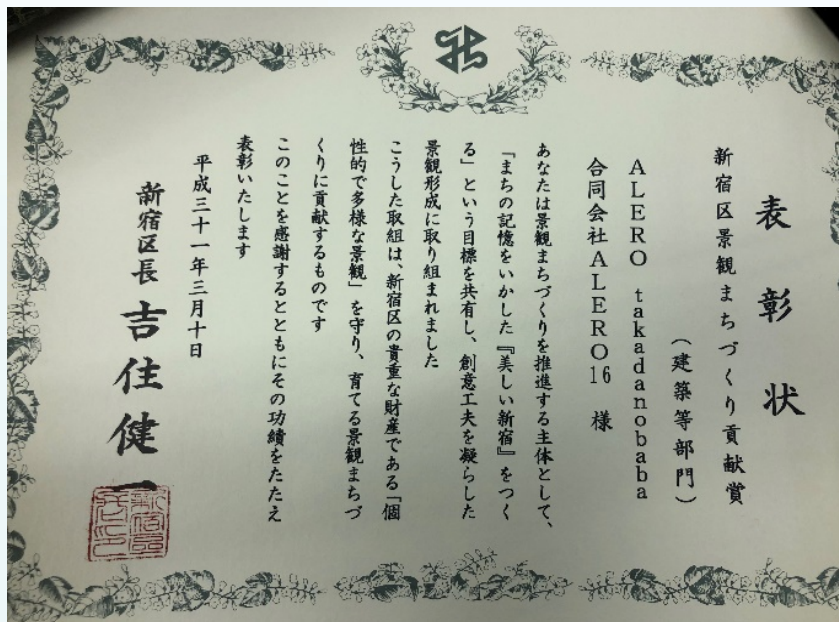 表彰状
新宿区景観まちづくり貢献賞
（建築等部門）
ALERO takadanobaba
合同会社ALERO16 様
あなたは景観まちづくりを推進する主体として、
「まちの記憶をいかした『美しい新宿』をつく
る」という目標を共有し、創意工夫を凝らした
景観形成に取り組まれました
こうした取組は、新宿区の貴重な財産である「個
性的で多様な景観」を守り、育てる景観まちづ
くりに貢献するものです
このことを感謝するとともにその功績をたたえ
表彰いたします
平成三十一年三月十日
新宿区長 吉住健一
新宿區長之印